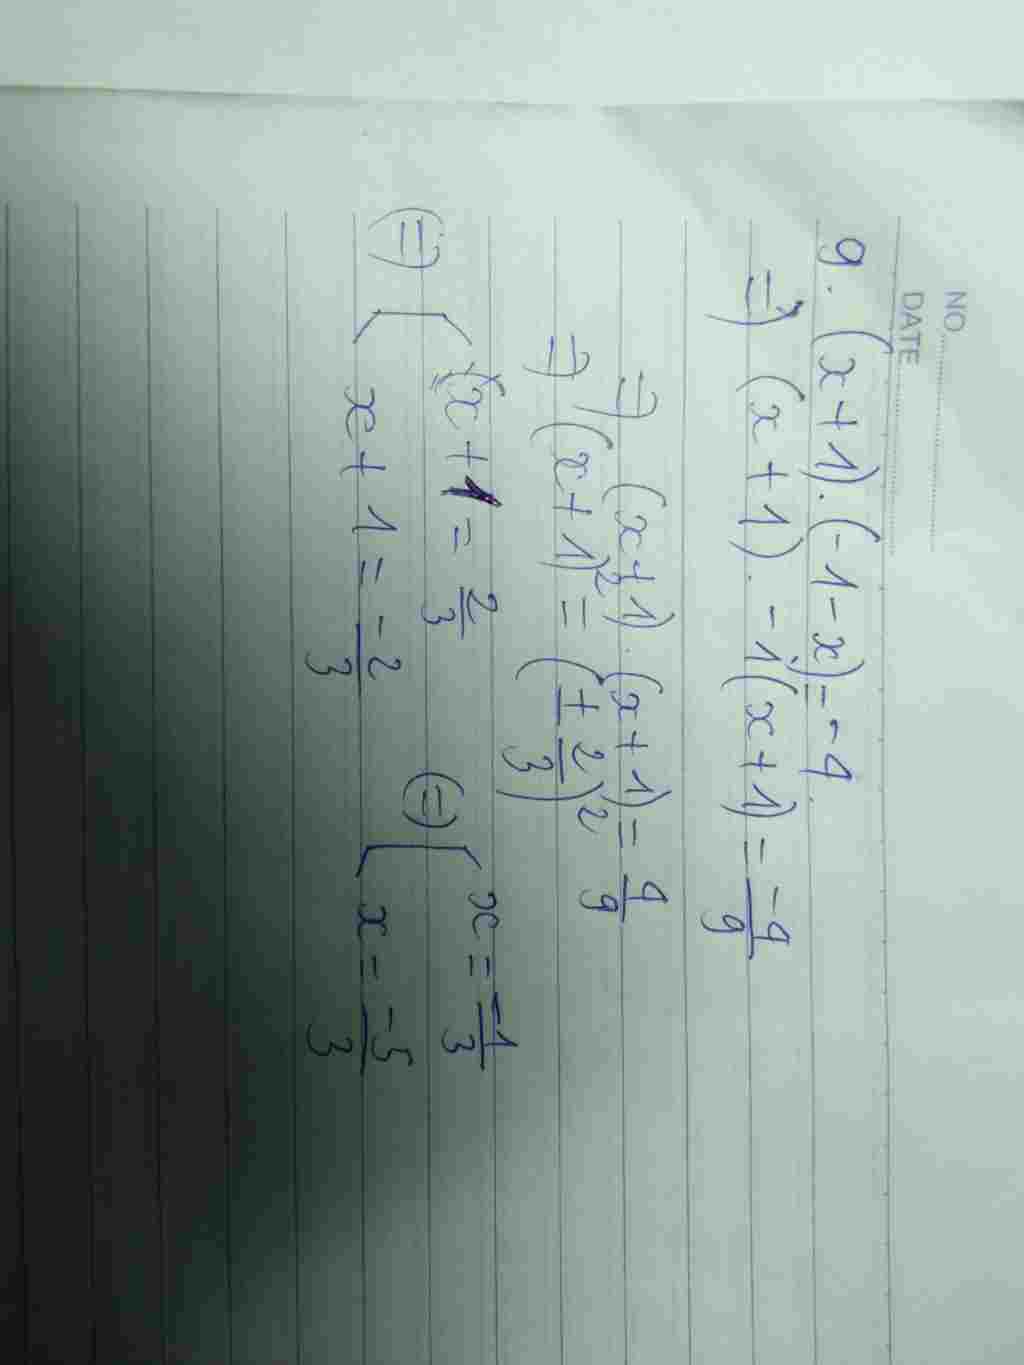 NO.
DATE
9. (x+1).(-1-x)=-4.
=) (x+1).-1(x+1)=-4/9
=) (x+1).(x+1)=4/9
=) (x+1)²=(±2/3)²
(=) [ x+1=2/3 (=) [ x=-1/3
x+1=-2/3 x=-5/3